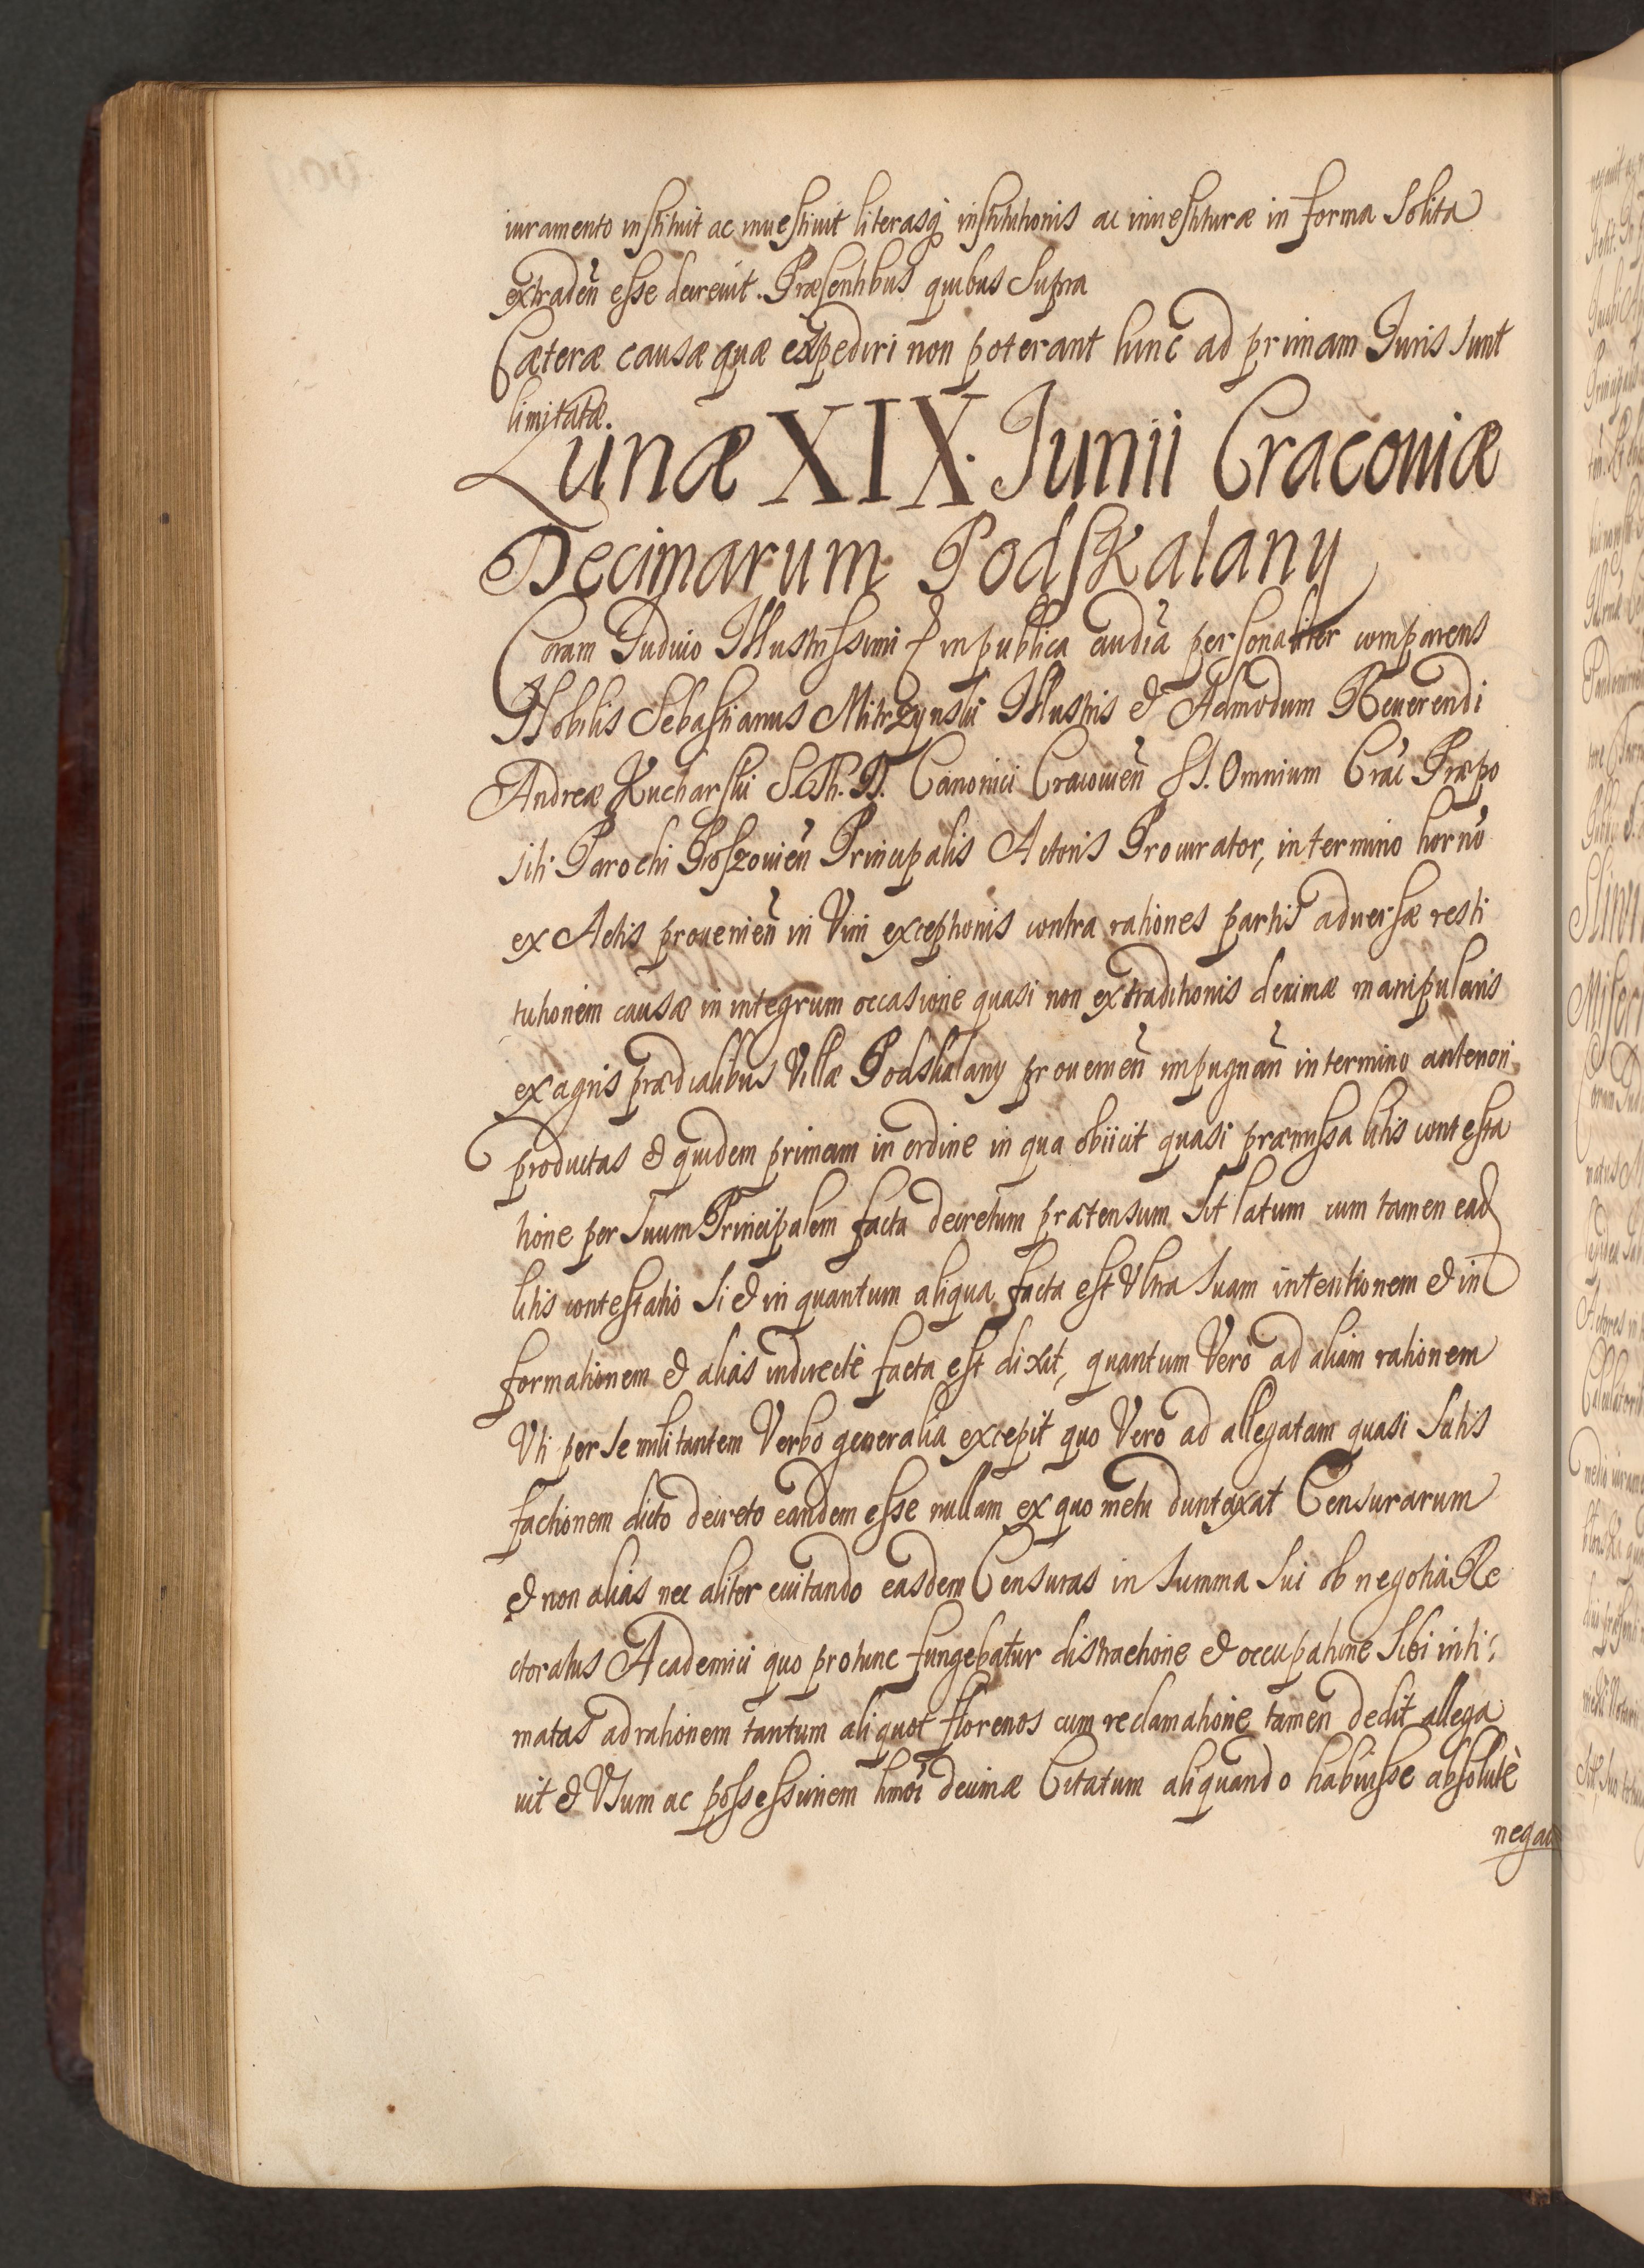 iuramento instituit ac inuestiuit literasq institutionis ac inuestituræ in forma Solita
extradeñ esse decreuit. Præsentibus quibus Supra
Cæteræ causæ quæ expediri non poterant hinc ad primam Iuris Sunt
limitatæ.
Lunæ XIX. Junii Cracouiæ
Decimarum Podskalany
Coram Judicio Illustrissimi & in publica audia personaliter comparens
Nobilis Sebastianus Mitrzynski Illustris & Admodum Reuerendi
Andreæ Kucharski S. Th. D. Canonici Cracouień SS. Omnium Crac Præpo
siti Parochi Proszouień Principalis Actoris Procurator, in termino horno
ex Actis prouenień in Vim exceptionis contra rationes partis aduersæ resti
tutionem causæ in integrum occasione quasi non extraditionis decimæ manipularis
ex agris prædialibus Villæ Podskalany prouenień impugnań in termino anteriori
productas & quidem primam in ordine in qua obiicit quasi præmissa litis contesta
tione per Suum Principalem facta decretum prætensum Sit latum cum tamen ead
litis contestatio Si & in quantum aliqua facta est Vltra Suam intentionem & in
formationem & alias indirectè facta est dixit, quantum Verò ad aliam rationem
Vti per Se militantem Verbo generalia excepit quo Vero ad allegatam quasi Satis
factionem dicto decreto eandem esse nullam ex quo metu duntaxat Censurarum
& non alias nec aliter euitando easdem Censuras in Summa Sui ob negotia Re
ctoratus Academici quo protunc fungebatur distractione & occupatione Sibi inti
matas ad rationem tantum aliquot florenos cum reclamatione tamen dedit allega
uit & Vsum ac possessionem hmoi decimæ Citatum aliquando habuisse absolutè
negau